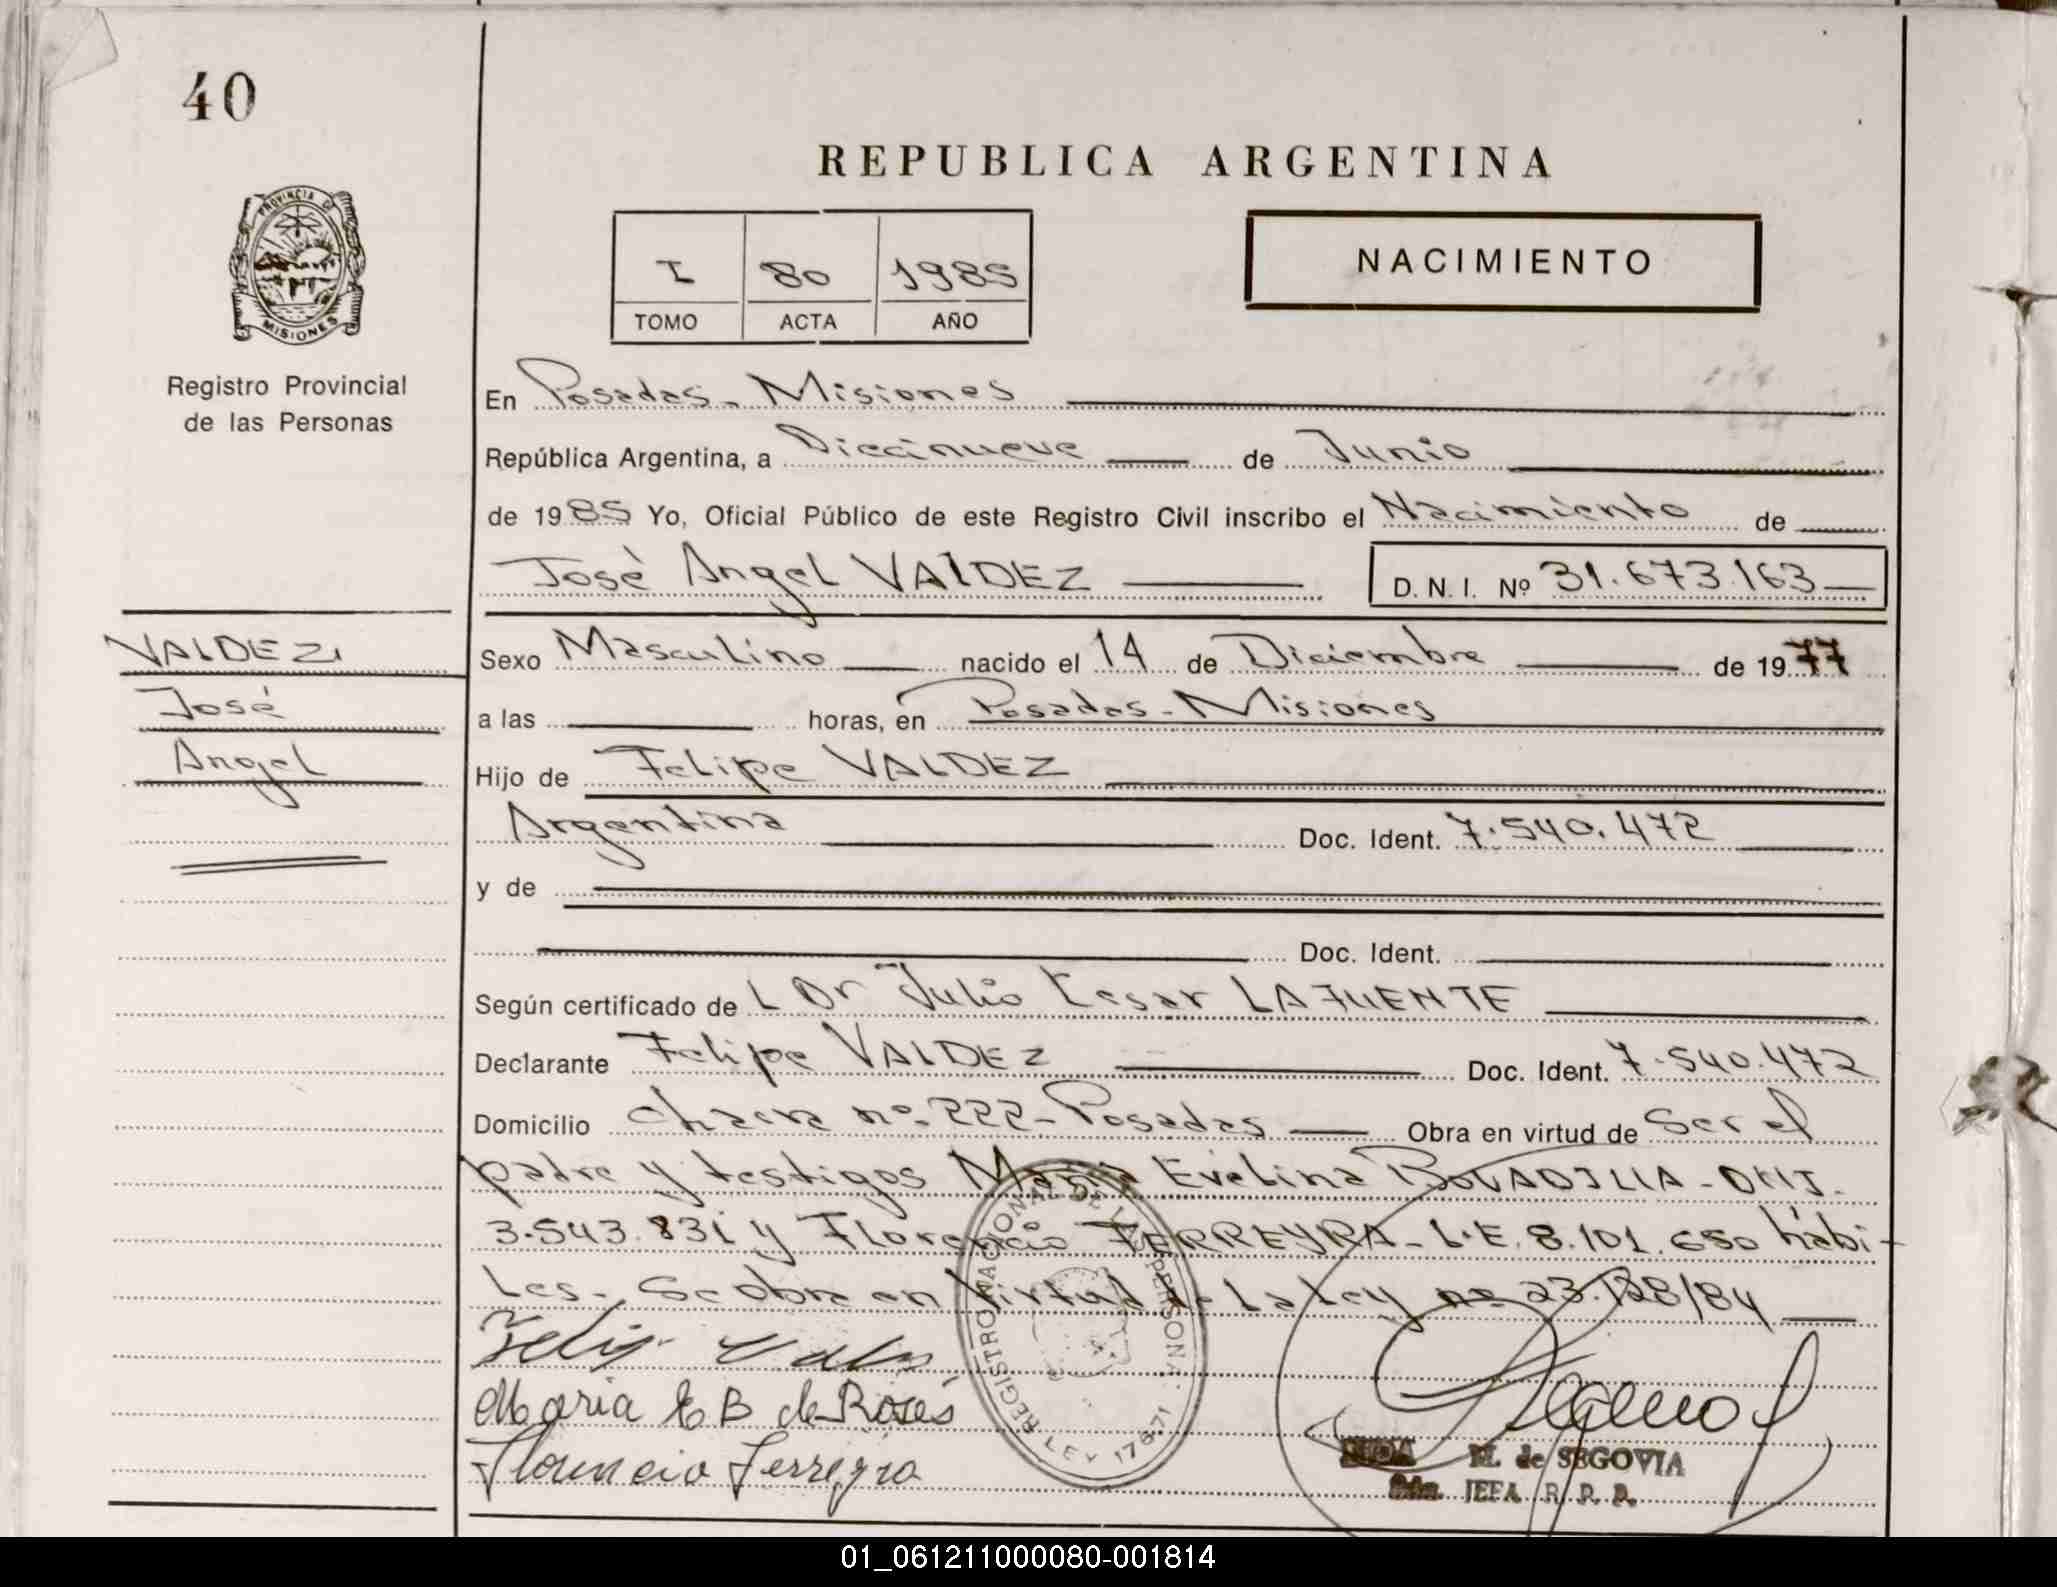 40
REPUBLICA ARGENTINA
PROVINCIA DE
MISIONES
I 80 1985
TOMO ACTA AÑO
NACIMIENTO
Registro Provincial
de las Personas
En Posadas - Misiones
República Argentina, a Diecinueve de Junio
de 1985 Yo, Oficial Público de este Registro Civil inscribo el Nacimiento de
Josè Angel VALDEZ D. N. I. Nº 31.673.163
VALDEZ
José
Angel
Sexo Masculino nacido el 14 de Diciembre de 1977
a las horas, en Posadas - Misiones
Hijo de Felipe VALDEZ
Argentina Doc. Ident. 7.540.472
y de
Doc. Ident.
Según certificado de L Dr Julio Cesar LAFUENTE
Declarante Felipe VALDEZ Doc. Ident. 7.540.472
Domicilio chacra nº 222 - Posadas Obra en virtud de Ser el
padre y testigos Maria Evelina BOVADILLA - DNI.
3.543.831 y Florencio FERREYRA - L.E. 8.101.650 hábi-
les - Se obra en virtud de la ley nº 23.128/84
Felip Vald
Maria E B de Roses
Florencio Ferreyra
REGISTRO NACIONAL DE LAS PERSONAS
LEY 17671
M. de SEGOVIA
JEFA R. P. P.
01_061211000080-001814